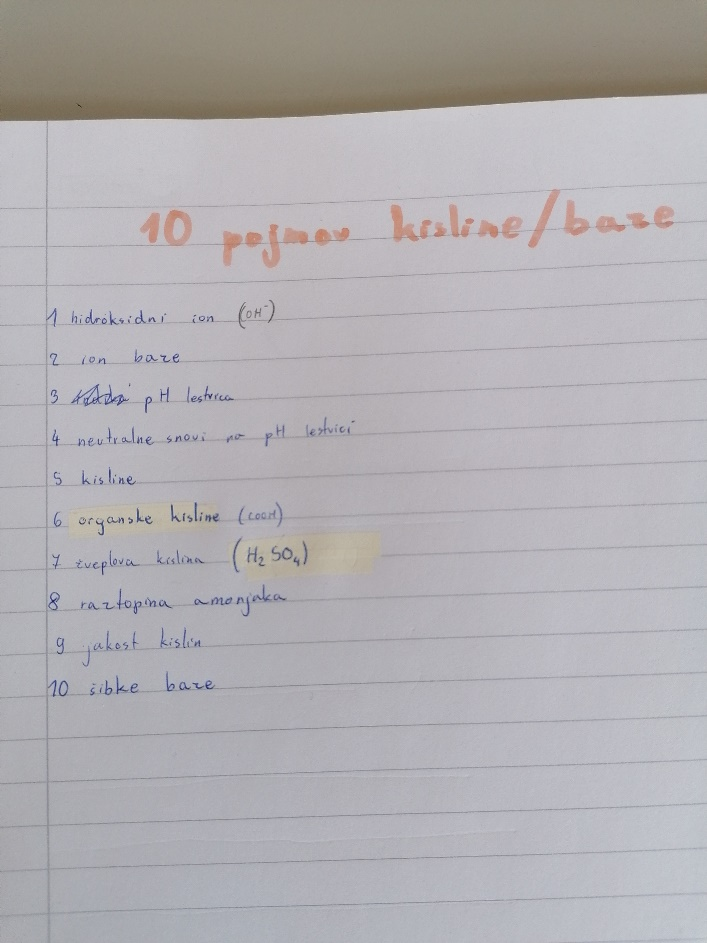 10 pojmov kisline/baze
1 hidroksidni ion (OH⁻)
2 ion baze
3 pH lestvica
4 neutralne snovi na pH lestvici
5 kisline
6 organske kisline (COOH)
7 žveplova kislina (H₂SO₄)
8 raztopina amonjaka
9 jakost kislin
10 šibke baze